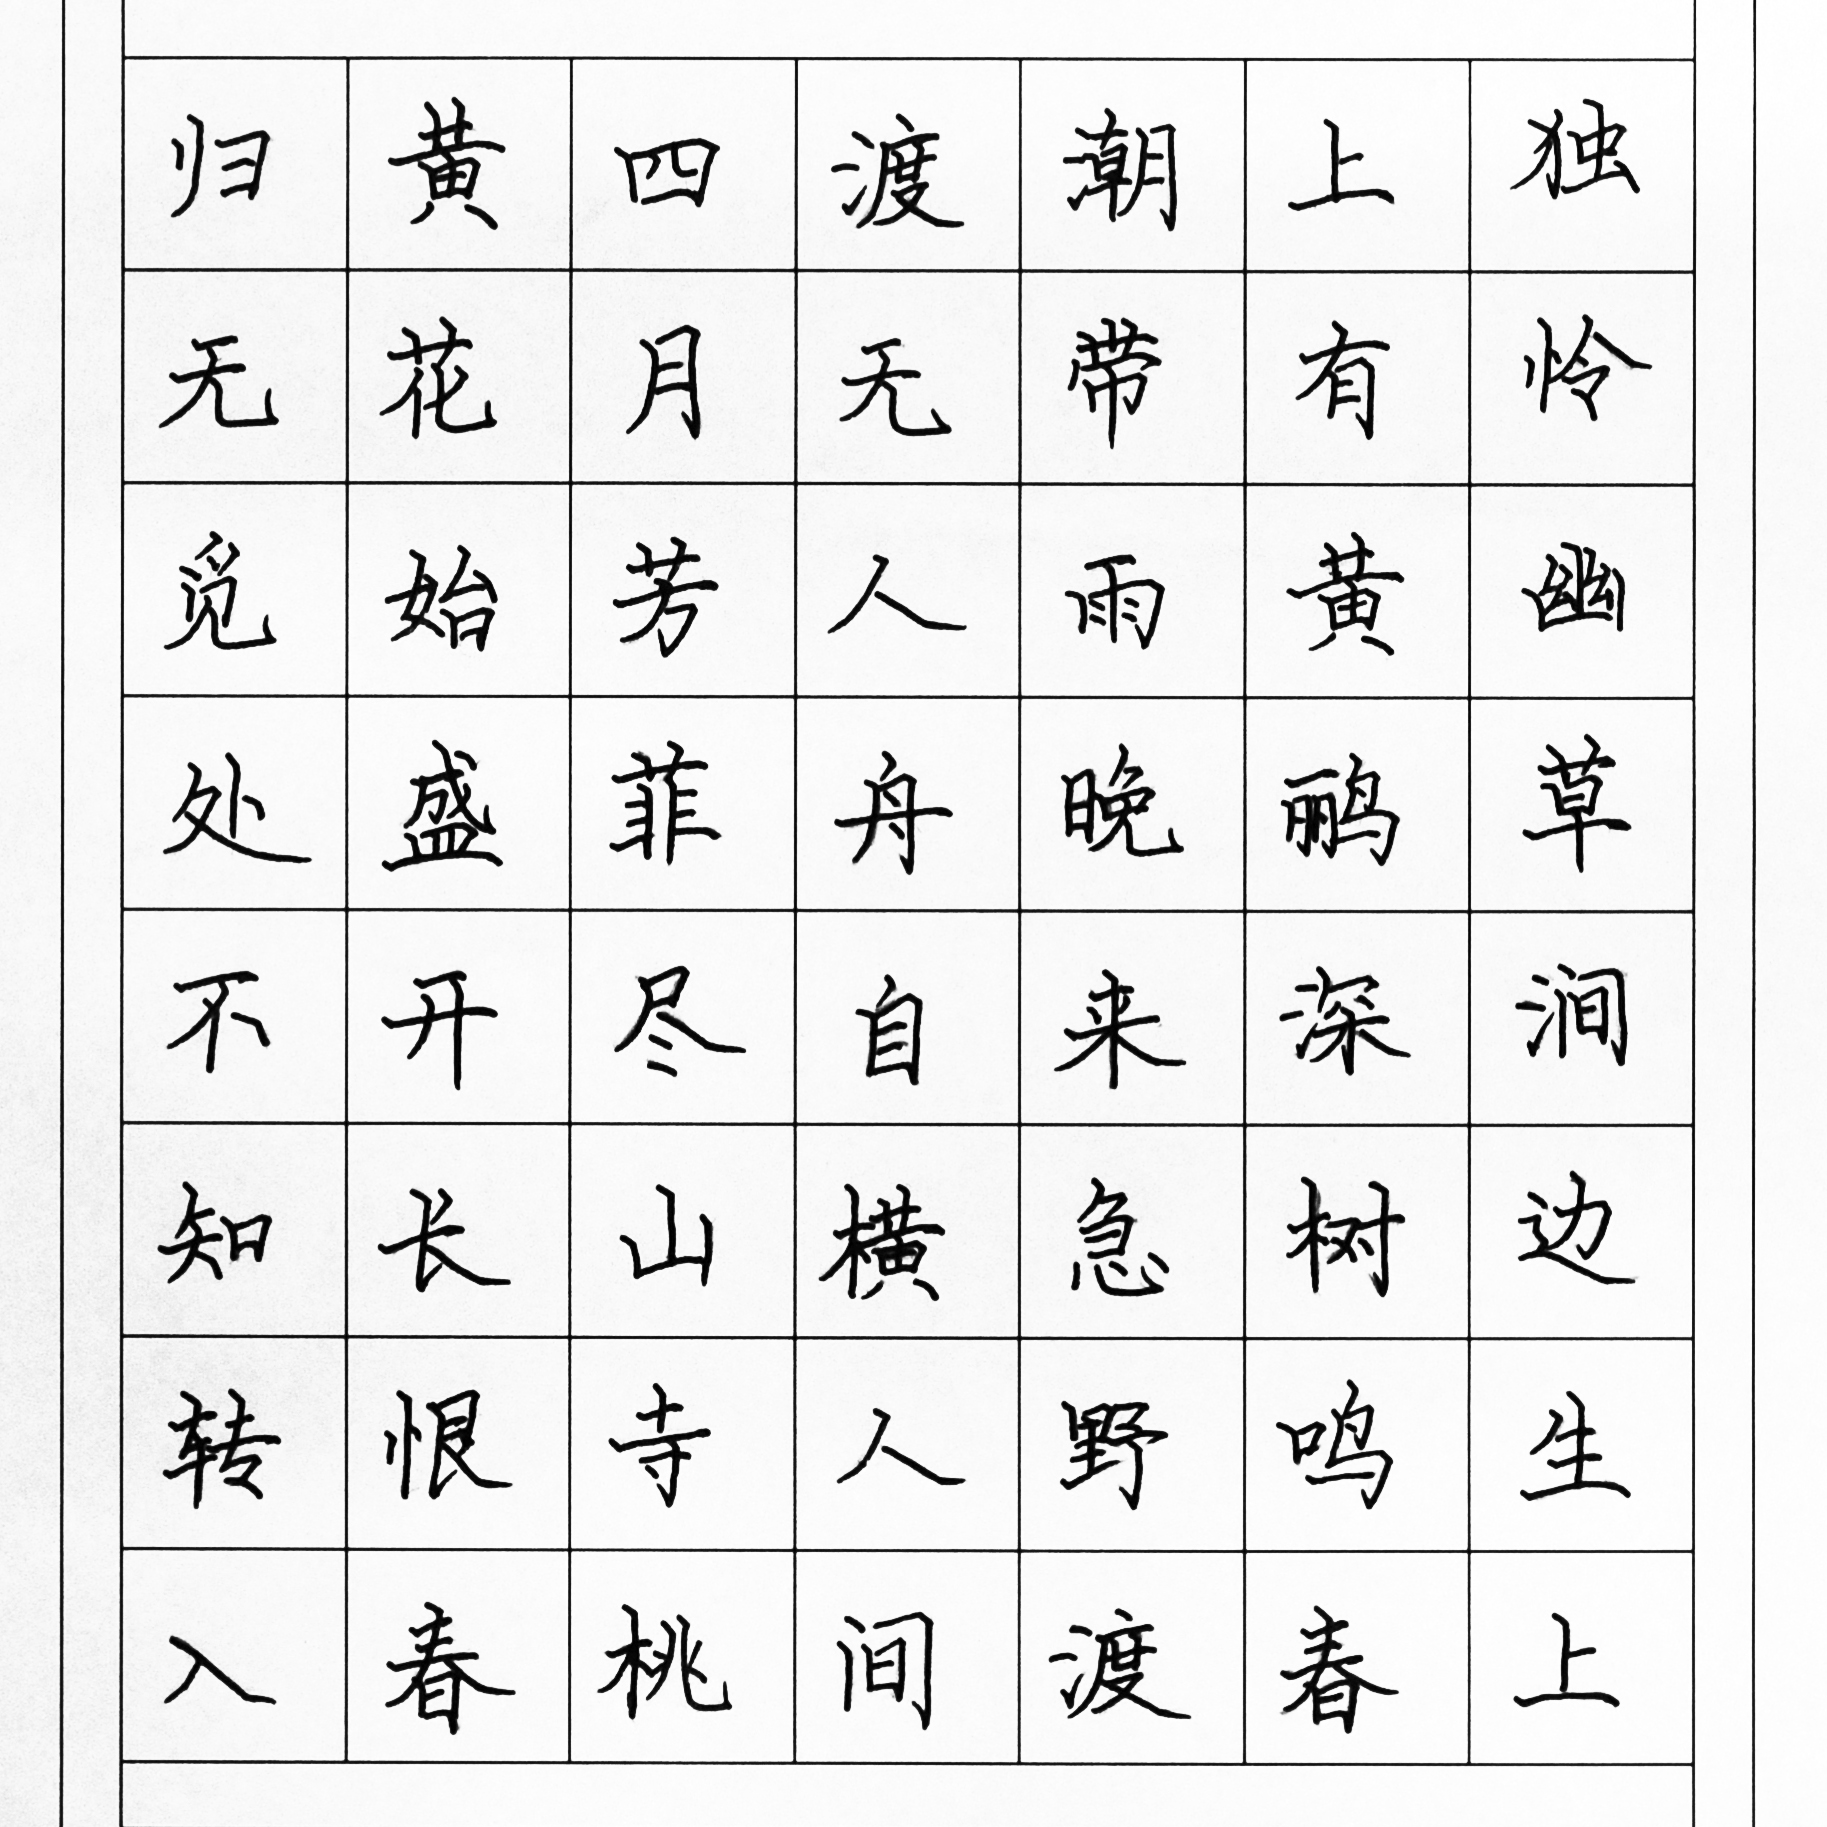 独怜幽草涧边生上
上有黄鹂深树鸣春
潮带雨晚来急野渡
渡无人舟自横人间
四月芳菲尽山寺桃
黄花始盛开长恨春
归无觅处不知转入